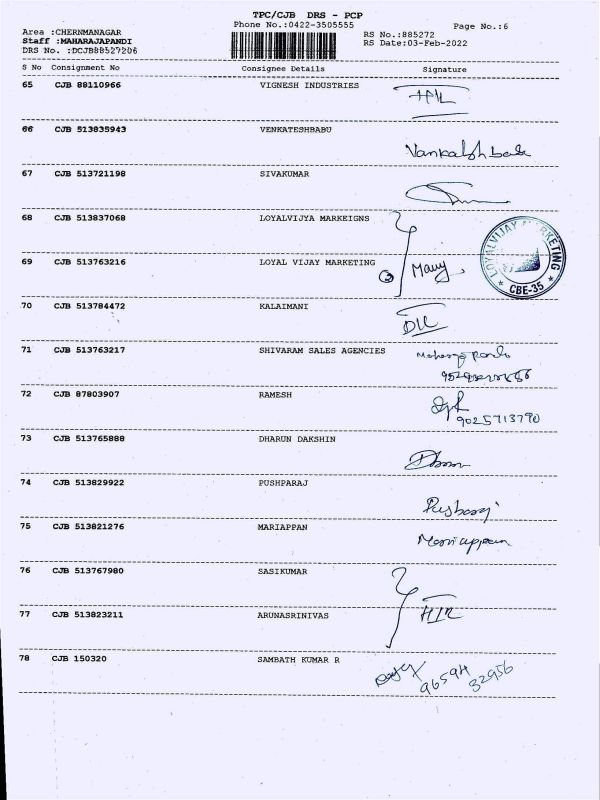 TPC/CJB DRS - PCP
Phone No.:0422-3505555
Page No.:6
Area :CHERNMANAGAR
Staff :MAHARAJAPANDI
DRS No. :DCJB88527206
RS No.:885272
RS Date:03-Feb-2022
S No Consignment No Consignee Details Signature
65 CJB 88110966 VIGNESH INDUSTRIES
66 CJB 513835943 VENKATESHBABU
67 CJB 513721198 SIVAKUMAR
68 CJB 513837068 LOYALVIJYA MARKEIGNS
69 CJB 513763216 LOYAL VIJAY MARKETING
LOYALVIJAY MARKETING
CBE-35
70 CJB 513784472 KALAIMANI
71 CJB 513763217 SHIVARAM SALES AGENCIES
72 CJB 87803907 RAMESH
9025713790
73 CJB 513765888 DHARUN DAKSHIN
74 CJB 513829922 PUSHPARAJ
75 CJB 513821276 MARIAPPAN
Mariappan
76 CJB 513767980 SASIKUMAR
77 CJB 513823211 ARUNASRINIVAS
78 CJB 150320 SAMBATH KUMAR R